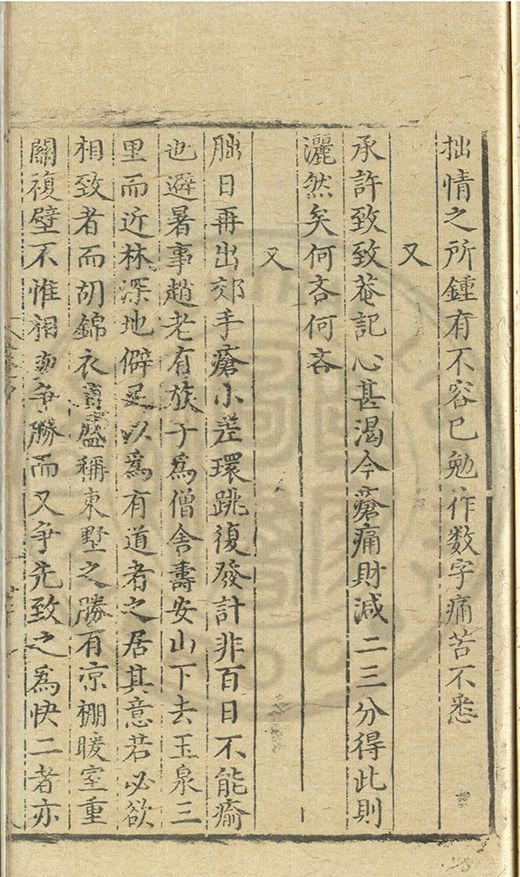 拙情之所鍾有不容已勉作数字痛苦不悉
又
承許致致菴記心甚渴今瘡痛財減二三分得此則
灑然矣何吝何吝
又
朏日再出郊手瘡小差環跳復發計非百日不能瘉
也避暑事趙老有族子為僧舍壽安山下去玉泉三
里而近林深地僻足以為有道者之居其意若必欲
相致者而胡錦衣言盛稱東墅之勝有凉棚暖室重
關複壁不惟相争勝而又争先致之為快二者亦